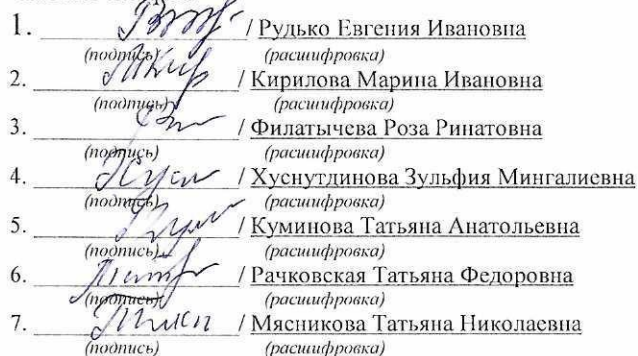 1. / Рудько Евгения Ивановна
(подпись) (расшифровка)
2. / Кирилова Марина Ивановна
(подпись) (расшифровка)
3. / Филатычева Роза Ринатовна
(подпись) (расшифровка)
4. / Хуснутдинова Зульфия Мингалиевна
(подпись) (расшифровка)
5. / Куминова Татьяна Анатольевна
(подпись) (расшифровка)
6. / Рачковская Татьяна Федоровна
(подпись) (расшифровка)
7. / Мясникова Татьяна Николаевна
(подпись) (расшифровка)